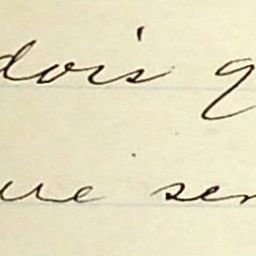 dois q
ure ser